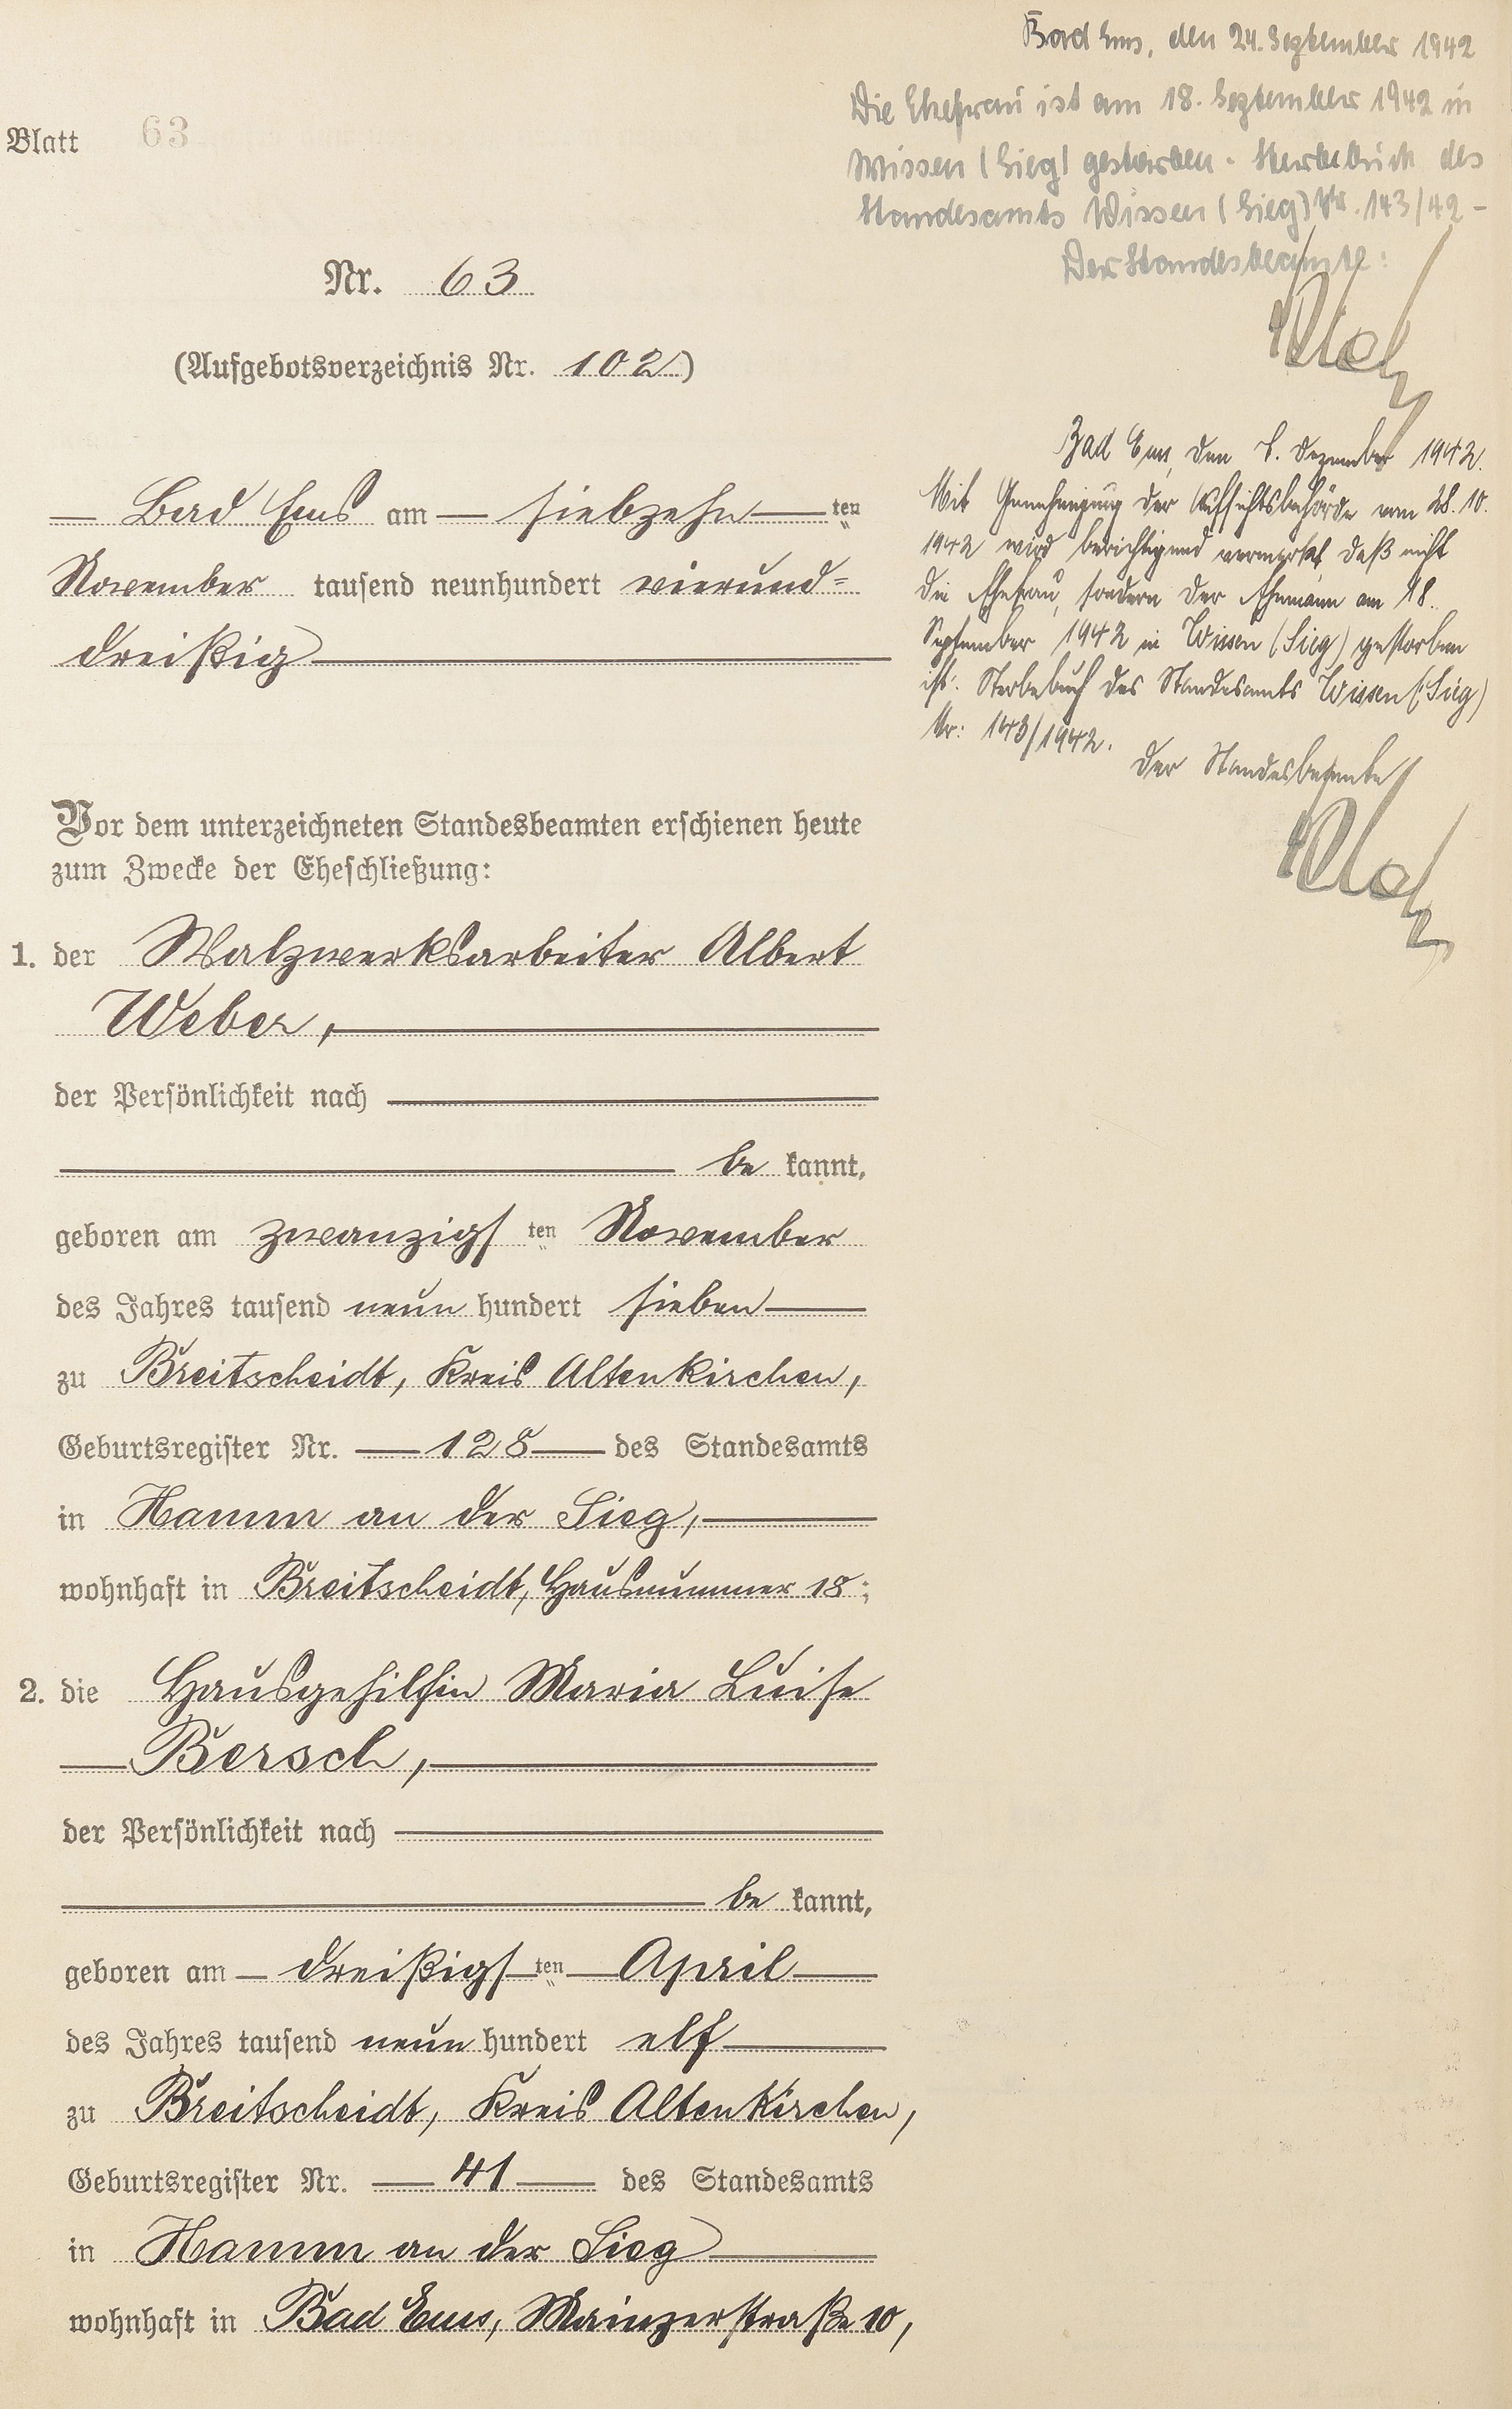 Blatt 63
Nr. 63
(Aufgebotsverzeichnis Nr. 102)
Bad Ems am siebzehnten
November tausend neunhundert vierund=
dreißig
Vor dem unterzeichneten Standesbeamten erschienen heute
zum Zwecke der Eheschließung:
1. der Walzwerksarbeiter Albert
Weber,
der Persönlichkeit nach
be kannt,
geboren am zwanzigsten November
des Jahres tausend neun hundert sieben
zu Breitscheidt, Kreis Altenkirchen,
Geburtsregister Nr. 128 des Standesamts
in Hamm an der Sieg,
wohnhaft in Breitscheidt, Hausnummer 18;
2. die Hausgehilfin Maria Luise
Bersch,
der Persönlichkeit nach
be kannt,
geboren am dreißigsten April
des Jahres tausend neun hundert elf
zu Breitscheidt, Kreis Altenkirchen,
Geburtsregister Nr. 41 des Standesamts
in Hamm an der Sieg
wohnhaft in Bad Ems, Mainzerstraße 10,
Bad Ems, den 24. September 1942
Die Ehefrau ist am 18. September 1942 in
Wissen (Sieg) gestorben - Sterbebuch des
Standesamts Wissen (Sieg) Nr. 143/42 -
Der Standesbeamte:
Bad Ems, den Dezember 1942.
Mit Genehmigung der Aufsichtsbehörde vom 28. 10.
1942 wird berichtigend vermerkt, daß nicht
die Ehefrau, sondern der Ehemann am 18.
September 1942 in Wissen (Sieg) gestorben
ist. Sterbebuch des Standesamts Wissen (Sieg)
Nr: 143/1942.
Der Standesbeamte